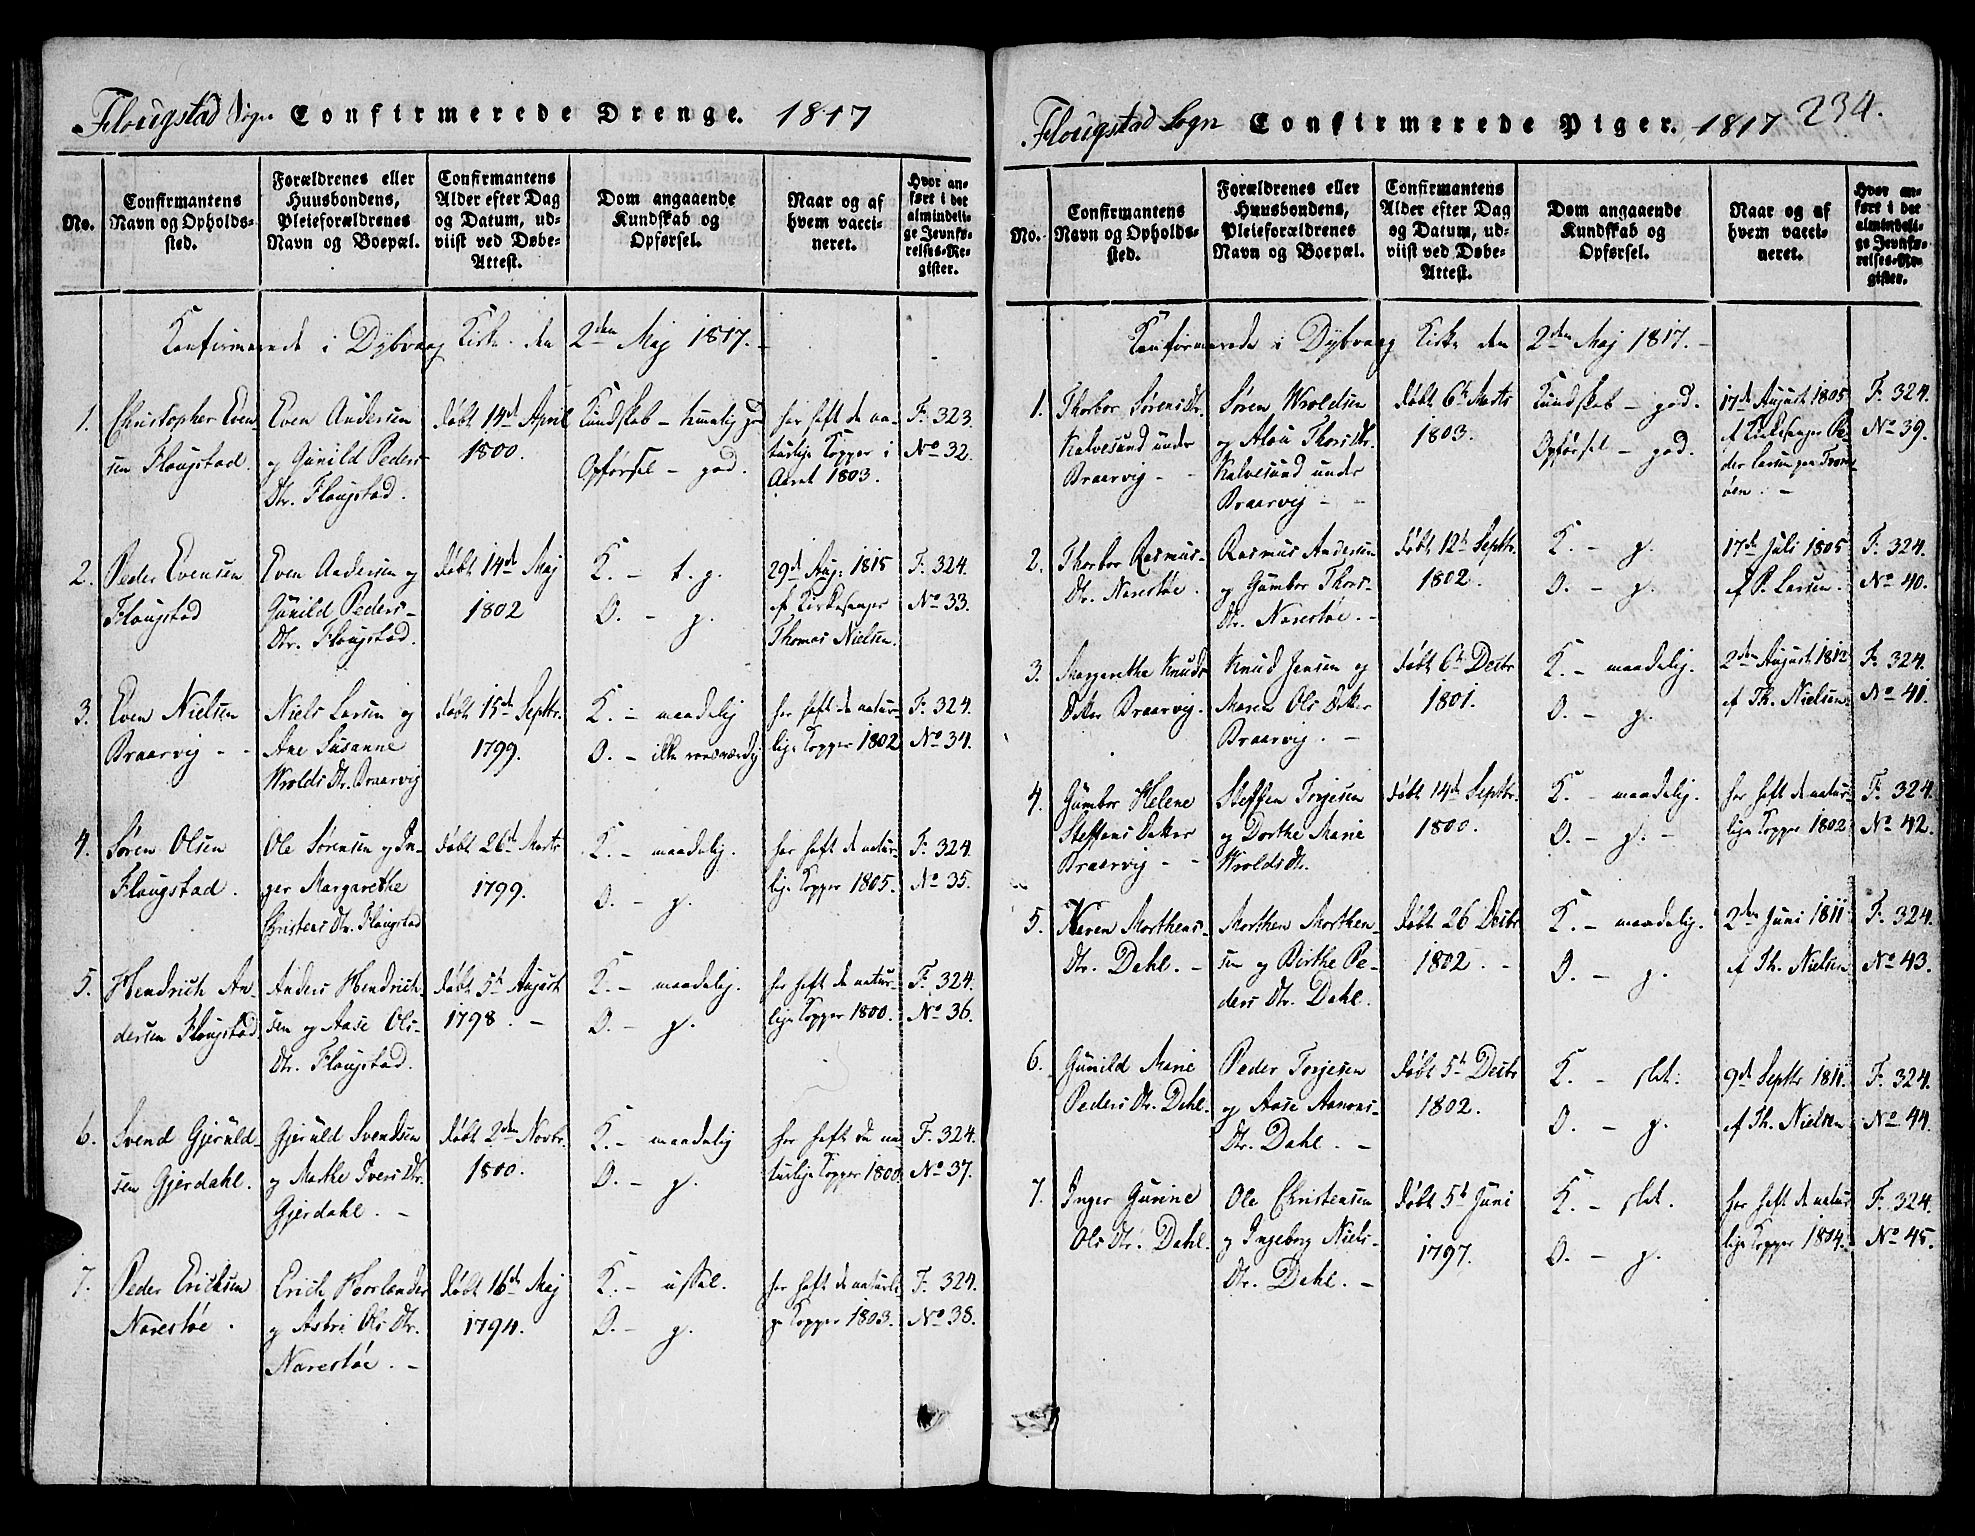 Flougstad Sogn Confirmerede Drenge. 1817
No.
Confirmantens
Navn og Opholds-
sted.
Forældrenes eller
Huusbondens,
Pleieforældrenes
Navn og Boepæl.
Confirmantens
Alder efter Dag
og Datum, ud-
viist ved Døbe-
Attest.
Dom angaaende
Kundskab og
Opførsel.
Naar og af
hvem vacci-
neret.
Hvor an-
ført i det
almindeli-
ge Jevnfø-
relses-Re-
gister.
Confirmerede i Dybvaag Kirke den 2den Maj 1817. -
1.
Christopher Even-
sen Flougstad.
Even Andersen
og Gunild Peders-
Dtr. Flougstad.
døbt 14d April
1800.
Kundskab - temelig god
Opførsel - god.
har haft de na-
turlige Kopper i
Aaret 1803.
F. 323.
No 32.
2.
Peder Evensen
Flougstad
Even Andersen og
Gunild Peders-
Dtr. Flougstad.
døbt 14d Maj
1802
K. - t. g.
O. - g.
29d Aug: 1815
af Kirkesanger
Thomas Nielsen.
F. 324.
No 33.
3.
Even Nielsen
Braarvig - -
Niels Larsen og
Ane Susanne
Wrolds Dtr. Braarvig
døbt 15d Septbr.
1799.
K. - maadelig
O. - ikke
har haft de natur-
lige Kopper 1802
F. 324.
No 34.
4.
Søren Olsen
Flougstad.
Ole Sørensen og In-
ger Margarethe
Christens Dtr. Flougstad
døbt 26d Marts
1799.
K. - maadelig.
O. - g.
har haft de natur-
lige Kopper 1805.
F. 324.
No 35.
5.
Hendrich An-
dersen Flougstad.
Anders Hendrich-
sen og Aase Ols-
Dtr. Flougstad.
døbt 5t August
1798. -
K. - maadelig.
O. - g.
har haft de natur-
lige Kopper 1800.
F. 324.
No 36.
6.
Svend Gjeruld-
sen Gjerdahl.
Gjeruld Svendsen
og Marthe Ivers Dtr.
Gjerdahl. -
døbt 2den Novbr.
1800.
K. - maadelig
O. - g.
har haft de na-
turlige Kopper 1800.
F. 324.
No 37.
7.
Peder Erichsen
Narestøe.
Erich Horlander
og Astri Ols Dtr.
Narestøe. -
døbt 16d Maj
1794.
K. - ussel.
O. - g.
har haft de naturli-
ge Kopper 1803.
F. 324.
No 38.
Flougstad Sogn Confirmerede Piger. 1817 234.
No.
Confirmantens
Navn og Opholds-
sted.
Forældrenes eller
Huusbondens,
Pleieforældrenes
Navn og Boepæl.
Confirmantens
Alder efter Dag
og Datum, ud-
viist ved Døbe-
Attest.
Dom angaaende
Kundskab og
Opførsel.
Naar og af
hvem vacci-
neret.
Hvor an-
ført i det
almindeli-
ge Jevnfø-
relses-Re-
gister.
Confirmerede i Dybvaag Kirke den 2den Maj 1817. -
1.
Thorbor Sørens Dtr.
Kalvesund under
Braarvig - -
Søren Wroldsen
og Thors Dtr.
Kalvesund under
Braarvig - -
døbt 6t Marts
1803.
Kundskab - god.
Opførsel - god.
17de August 1805
af Kirkesanger Pe-
der Larsen paa Trom-
øen. -
F. 324.
No 39.
2.
Thorbor Rasmus-
Dtr. Narestøe.
Rasmus Andersen
og Gumbor Thors-
Dtr. Narestøe. -
døbt 12t Septbr.
1802.
K. - g.
O. - g.
17de Juli 1805
af P. Larsen.
F. 324.
No 40.
3.
Margarethe Knuds
Datter Braarvig.
Knud Jensen og
Maren Ols Datter
Braarvig. -
døbt 6t Decbr
1801.
K. - maadelig.
O. - g.
2den August 1812
af Th. Nielsen.
F. 324.
No 41.
4.
Gumbor Helene
Steffens Datter
Braarvig - -
Steffen Torjesen
og Dorthe Marie
Wrolds Dtr.
døbt 14d Septbr.
1800.
K. - maadelig.
O. - g. -
har haft de natur-
lige Kopper 1802
F. 324.
No 42.
5.
Karen Morthens-
Dtr. Dahl. -
Morthen Morthen-
sen og Birthe Pe-
ders Dtr. Dahl.
døbt 26 Decbr
1802. -
K. - maadelig.
O. - g.
2den Juni 1811
af Th. Nielsen
F. 324.
No 43.
6.
Gunild Marie
Peders Dtr. Dahl.
Peder Torjesen
og Aase Aanons-
Dtr. Dahl. -
døbt 5t Decbr
1802.
K. - slet.
O. - g.
9d Septbr 1811.
af Th. Nielsen
F. 324.
No 44.
7.
Inger Gurine
Ols Dtr. Dahl.
Ole Christensen
og Ingeborg Niels-
Dtr. Dahl. -
døbt 5t Juni
1797.
K. - slet.
O. - g.
har haft de natur-
lige Kopper 1804.
F. 324.
No 45.